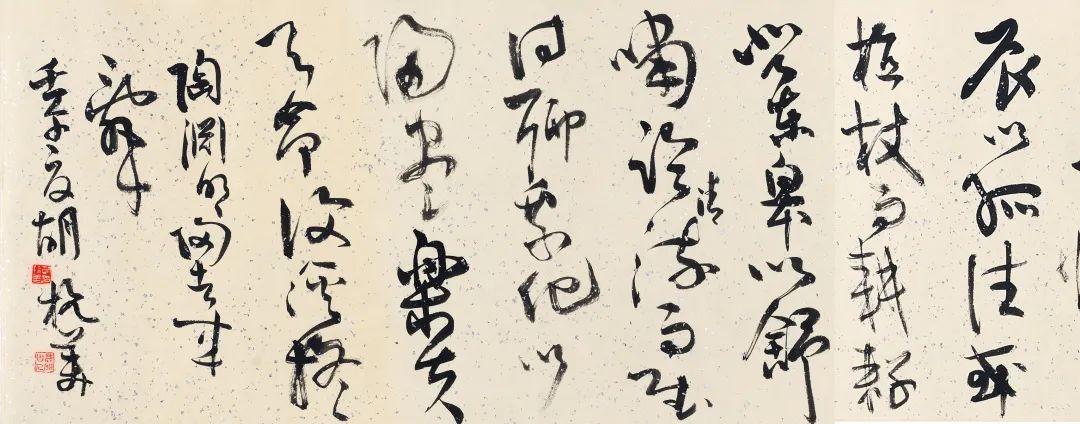 辰以孤往或
植杖而耕耔
登東皋以舒
嘯臨清流而賦
詩聊乘化以
歸盡樂夫
天命復奚疑
陶淵明歸去來
辭
夏胡抗美